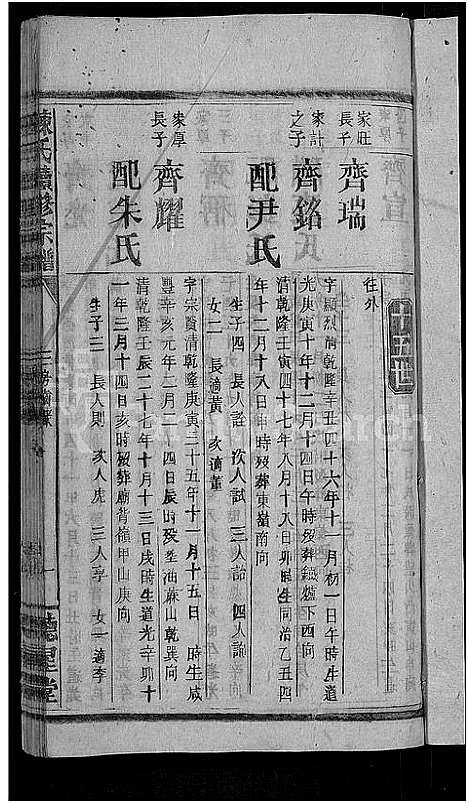 十五世
家旺
長子
齊瑞
往外
家計
之子
齊銘
字顯烈清乾隆辛丑四十六年十一月初一日午時生道
光庚寅十年十二月十四日午時殁葬鐵爐下西向
配尹氏
清乾隆壬寅四十七年八月十八日卯時生同治乙丑四
年十二月十八日申時殁葬東嶺南向
生子四 長人詮 次人試 三人詥 四人諭
女二 長適黃 次適董
家厚
長子
齊耀
字宗賢清乾隆庚寅三十五年十一月十五日 時生咸
豐辛亥元年二月二四日辰時殁塟油蔴山乾巽向
配朱氏
清乾隆壬辰三十七年十月十三日戌時生道光辛卯十
一年三月十四日亥時殁葬廟背嶺甲山庚向
生子三 長人則 次人虎 三人享 女一適李
陳氏續修宗譜
三房
一
德星堂